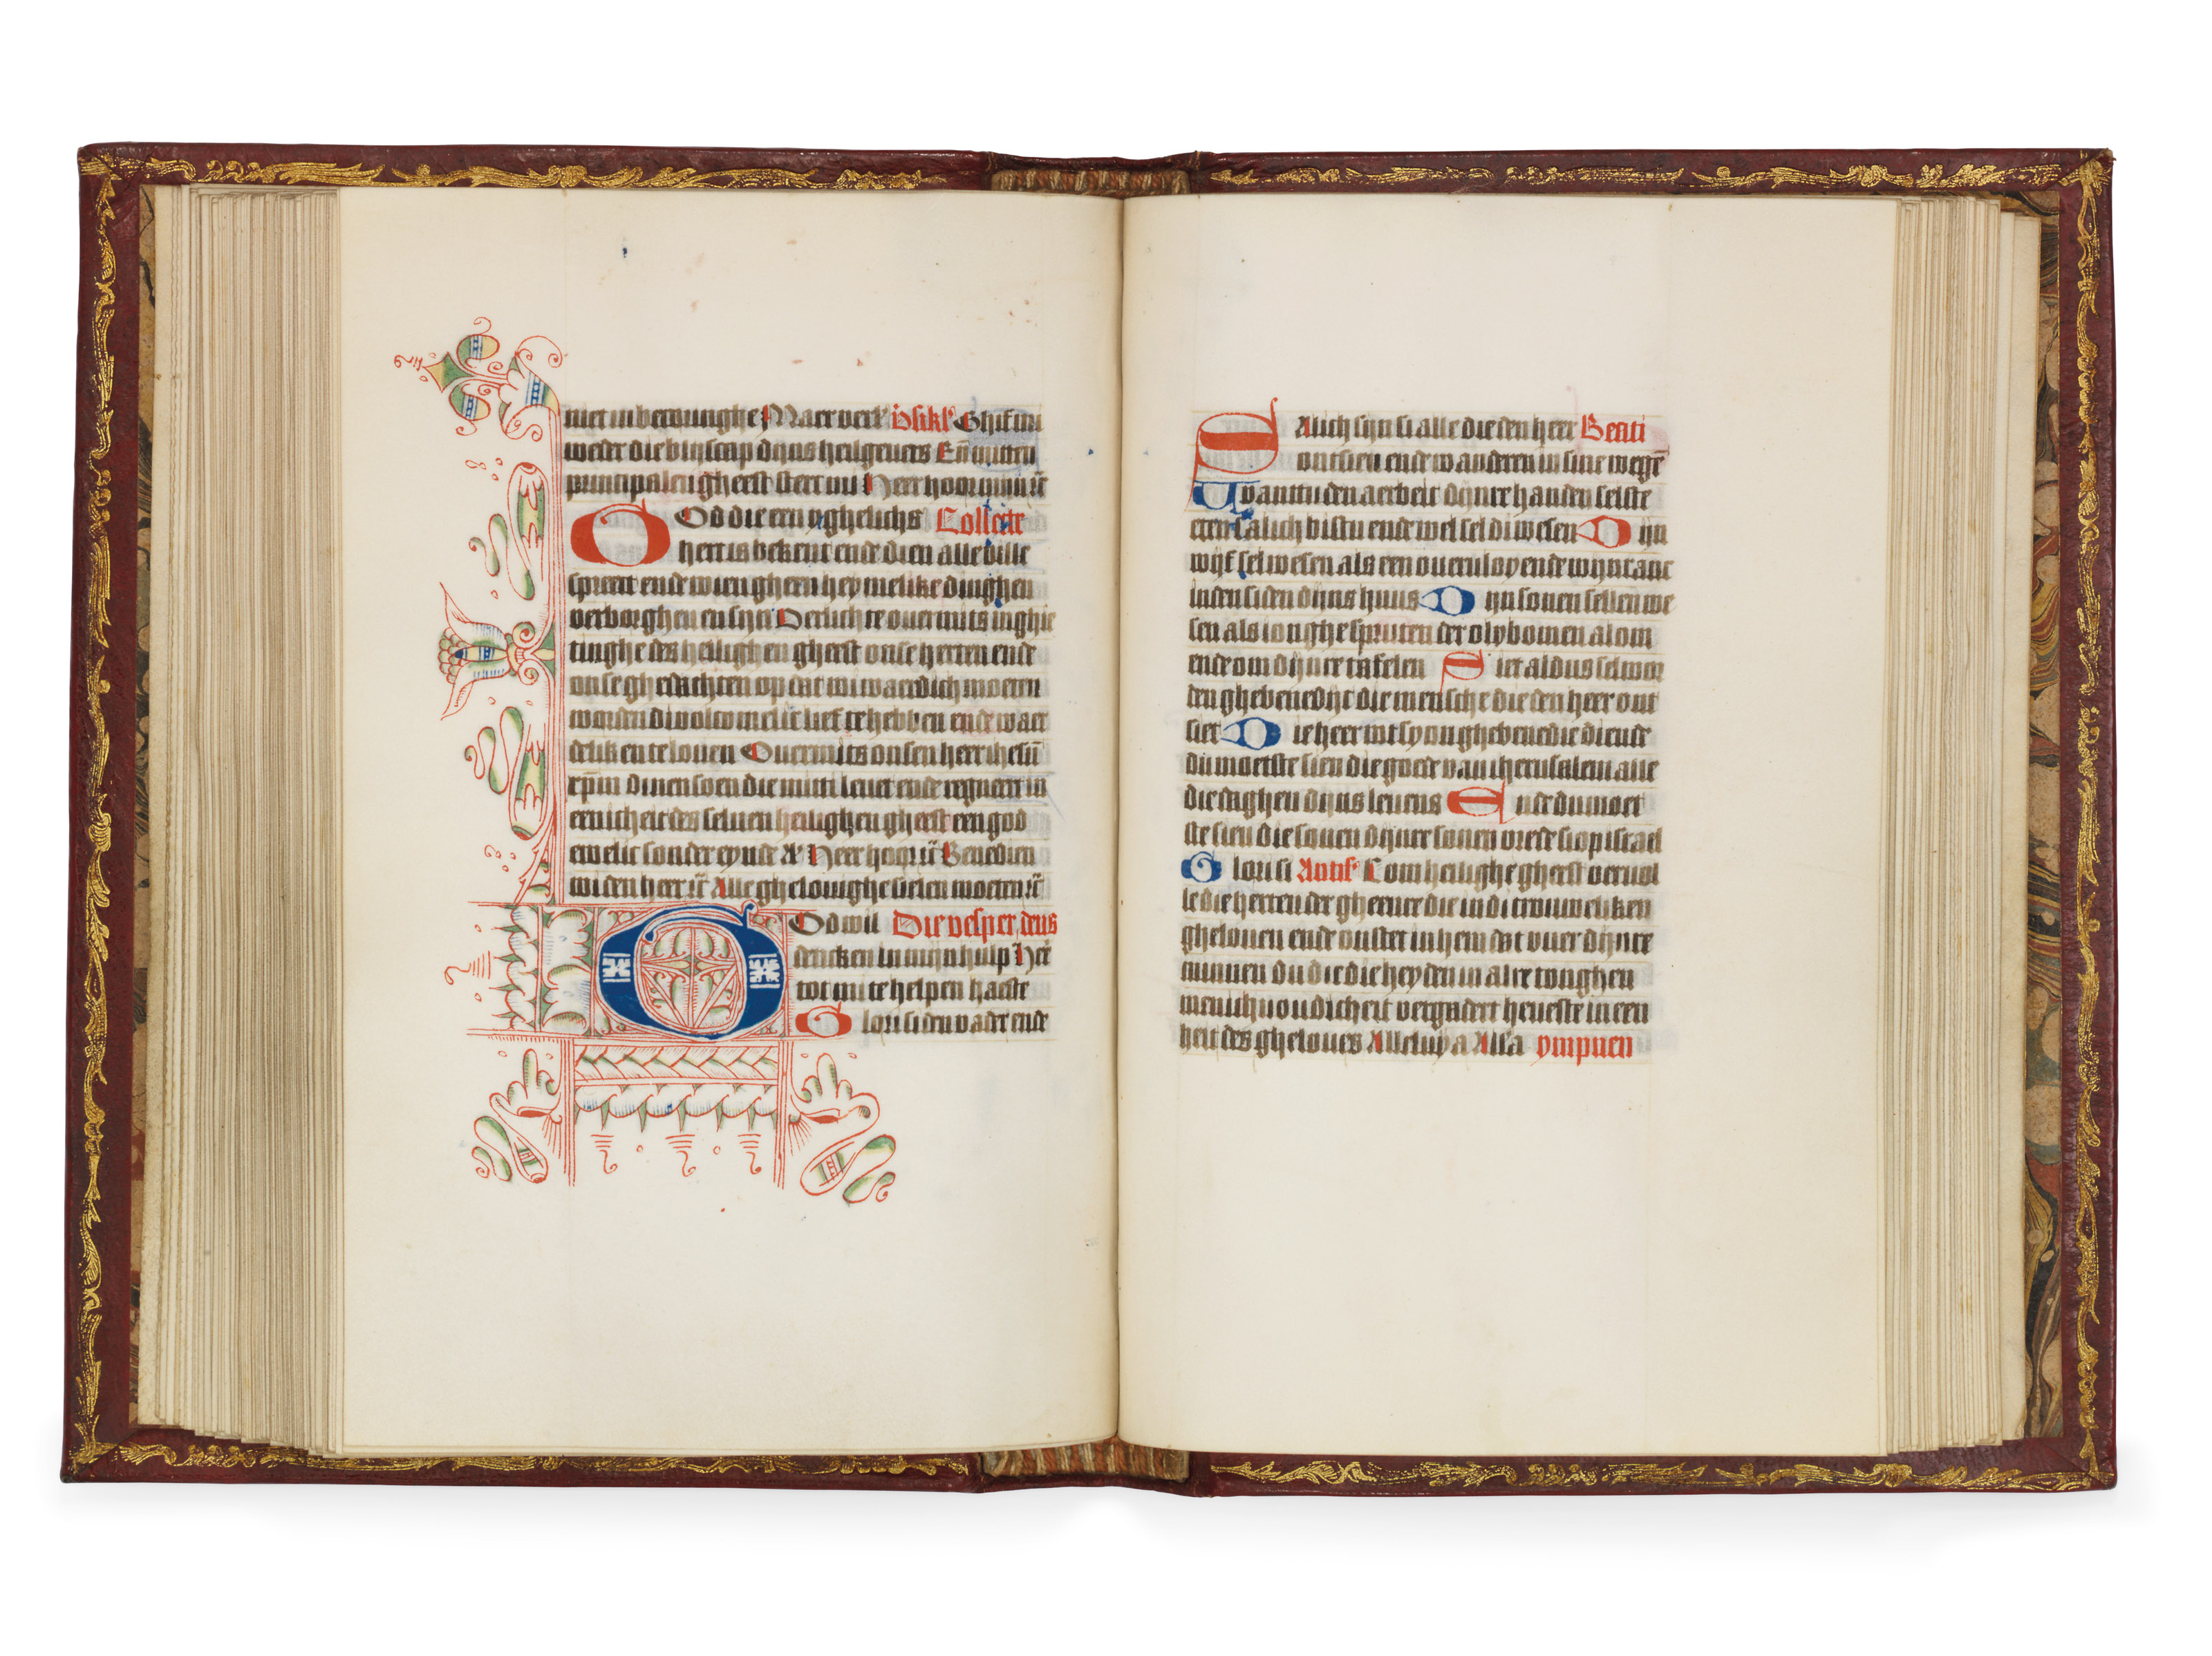 niet in becouringhe Maer verl' Vsikl' Ghif mi
weder die blijscap dijns heilgeuers En̄ mitten
principalen gheest sterc mi Heer hoor mijn r̄c
God die een yghelichs Collecte
hert is bekent ende dien alle wille
spreect ende wien gheen heymelike dinghen
verborghen en sijn Verlichte ouermits inghie
tinghe des heilighen gheest onse herten ende
onse ghedachten op dat wi waerdich moeten
worden di volcomelic lief te hebben ende waer
delik en te louen Ouermits onsen heer ihesū
xp̄m dinen soen die mitti leuet ende regneert in
eenicheit des seluen heilighen gheest een god
ewelic sonder eynde A' Heer hoor r̄c Benedien
wi den heer r̄c Alle ghelouighe sielen moeten r̄c
God wil Die vesper deus
dencken in mijn hulp Heer
tot mi te helpen haeste
Glori si den vader ende
Salich sijn si alle die den heer Beati
ontsien ende wanderen in sine wegē
Want du den aerbeit dijnre handen selste
eten salich bistu ende wel sel di wesen Dijn
wijf sel wesen als een oueruloyende wijntanc
inden siden dijns huus Dijn sonen sellen we
sen als ionghe spruten der olybomen al om
ende om dijnre tafelen Siet aldus sel wor
den ghebenedijt die mensche die den heer ont
siet Die heer wt syon ghebenedie di ende
du moetste sien die goede van iherusalem alle
die daghen dijns leuens Ende du moet
ste sien die sonen dijnre sonen vrede siop israel
Glori si Antif' Com heilighe gheest veruol
le die herten der gheenre die in di trouweliken
ghelouen ende ontstec in hem dat vuer dijnre
minnen du die die heyden in alre tonghen
menichuoudicheit vergadert heueste in een
heit des gheloues Alleluya All'a ympnen